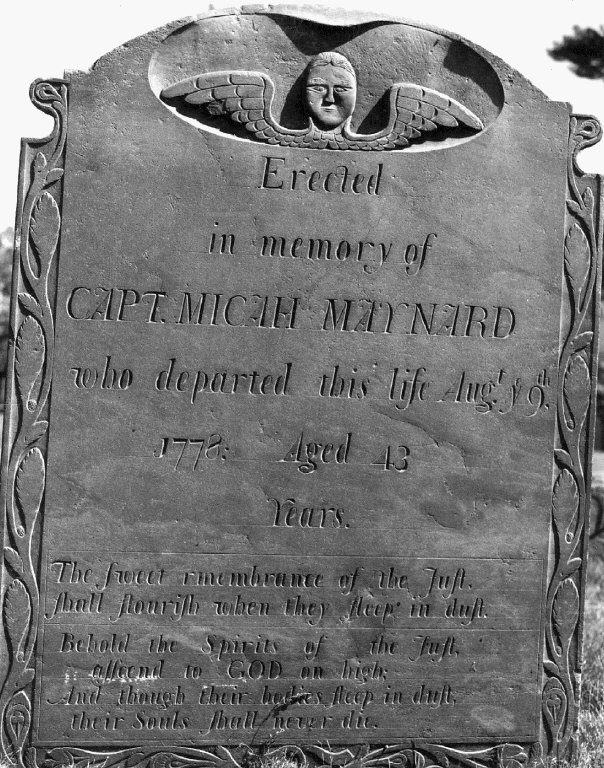 Erected
in memory of
CAPT. MICAH MAYNARD
who departed this life Augt. ye 9th.
1778: Aged 43
Years.
The ſweet rmembrance of the Juſt.
ſhall flouriſh when they ſleep in duſt.
Behold the Spirits of the Juſt,
aſſcend to GOD on high;
And though their bodies ſleep in duſt,
their Souls ſhall never die.